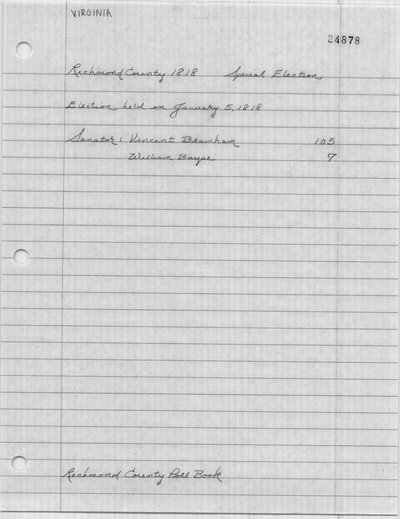 VIRGINIA
24878
Richmond County 1818 Special Election
Election held on January 5, 1818
Senator: Vincent Bramham 105
William Bayse 7
Richmond County Poll Book